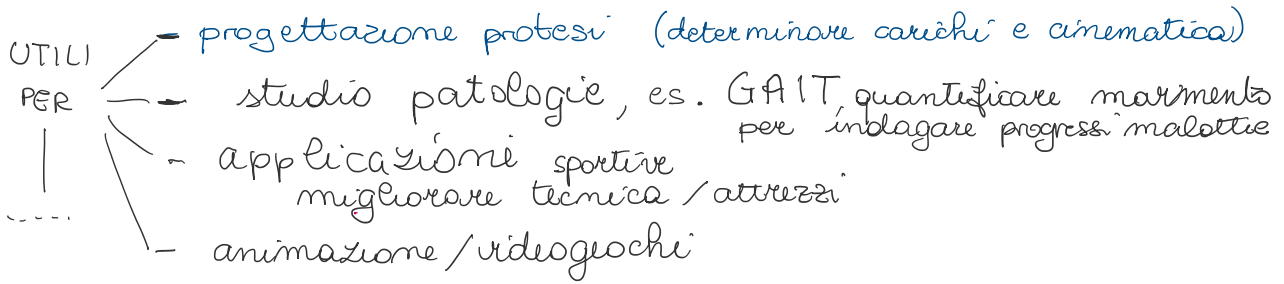 UTILI
PER
- progettazione protesi (determinare carichi e cinematica)
- studio patologie, es. GAIT, quantificare movimento
per indagare progressi malattie
- applicazioni sportive
migliorare tecnica / attrezzi
- animazione / videogiochi